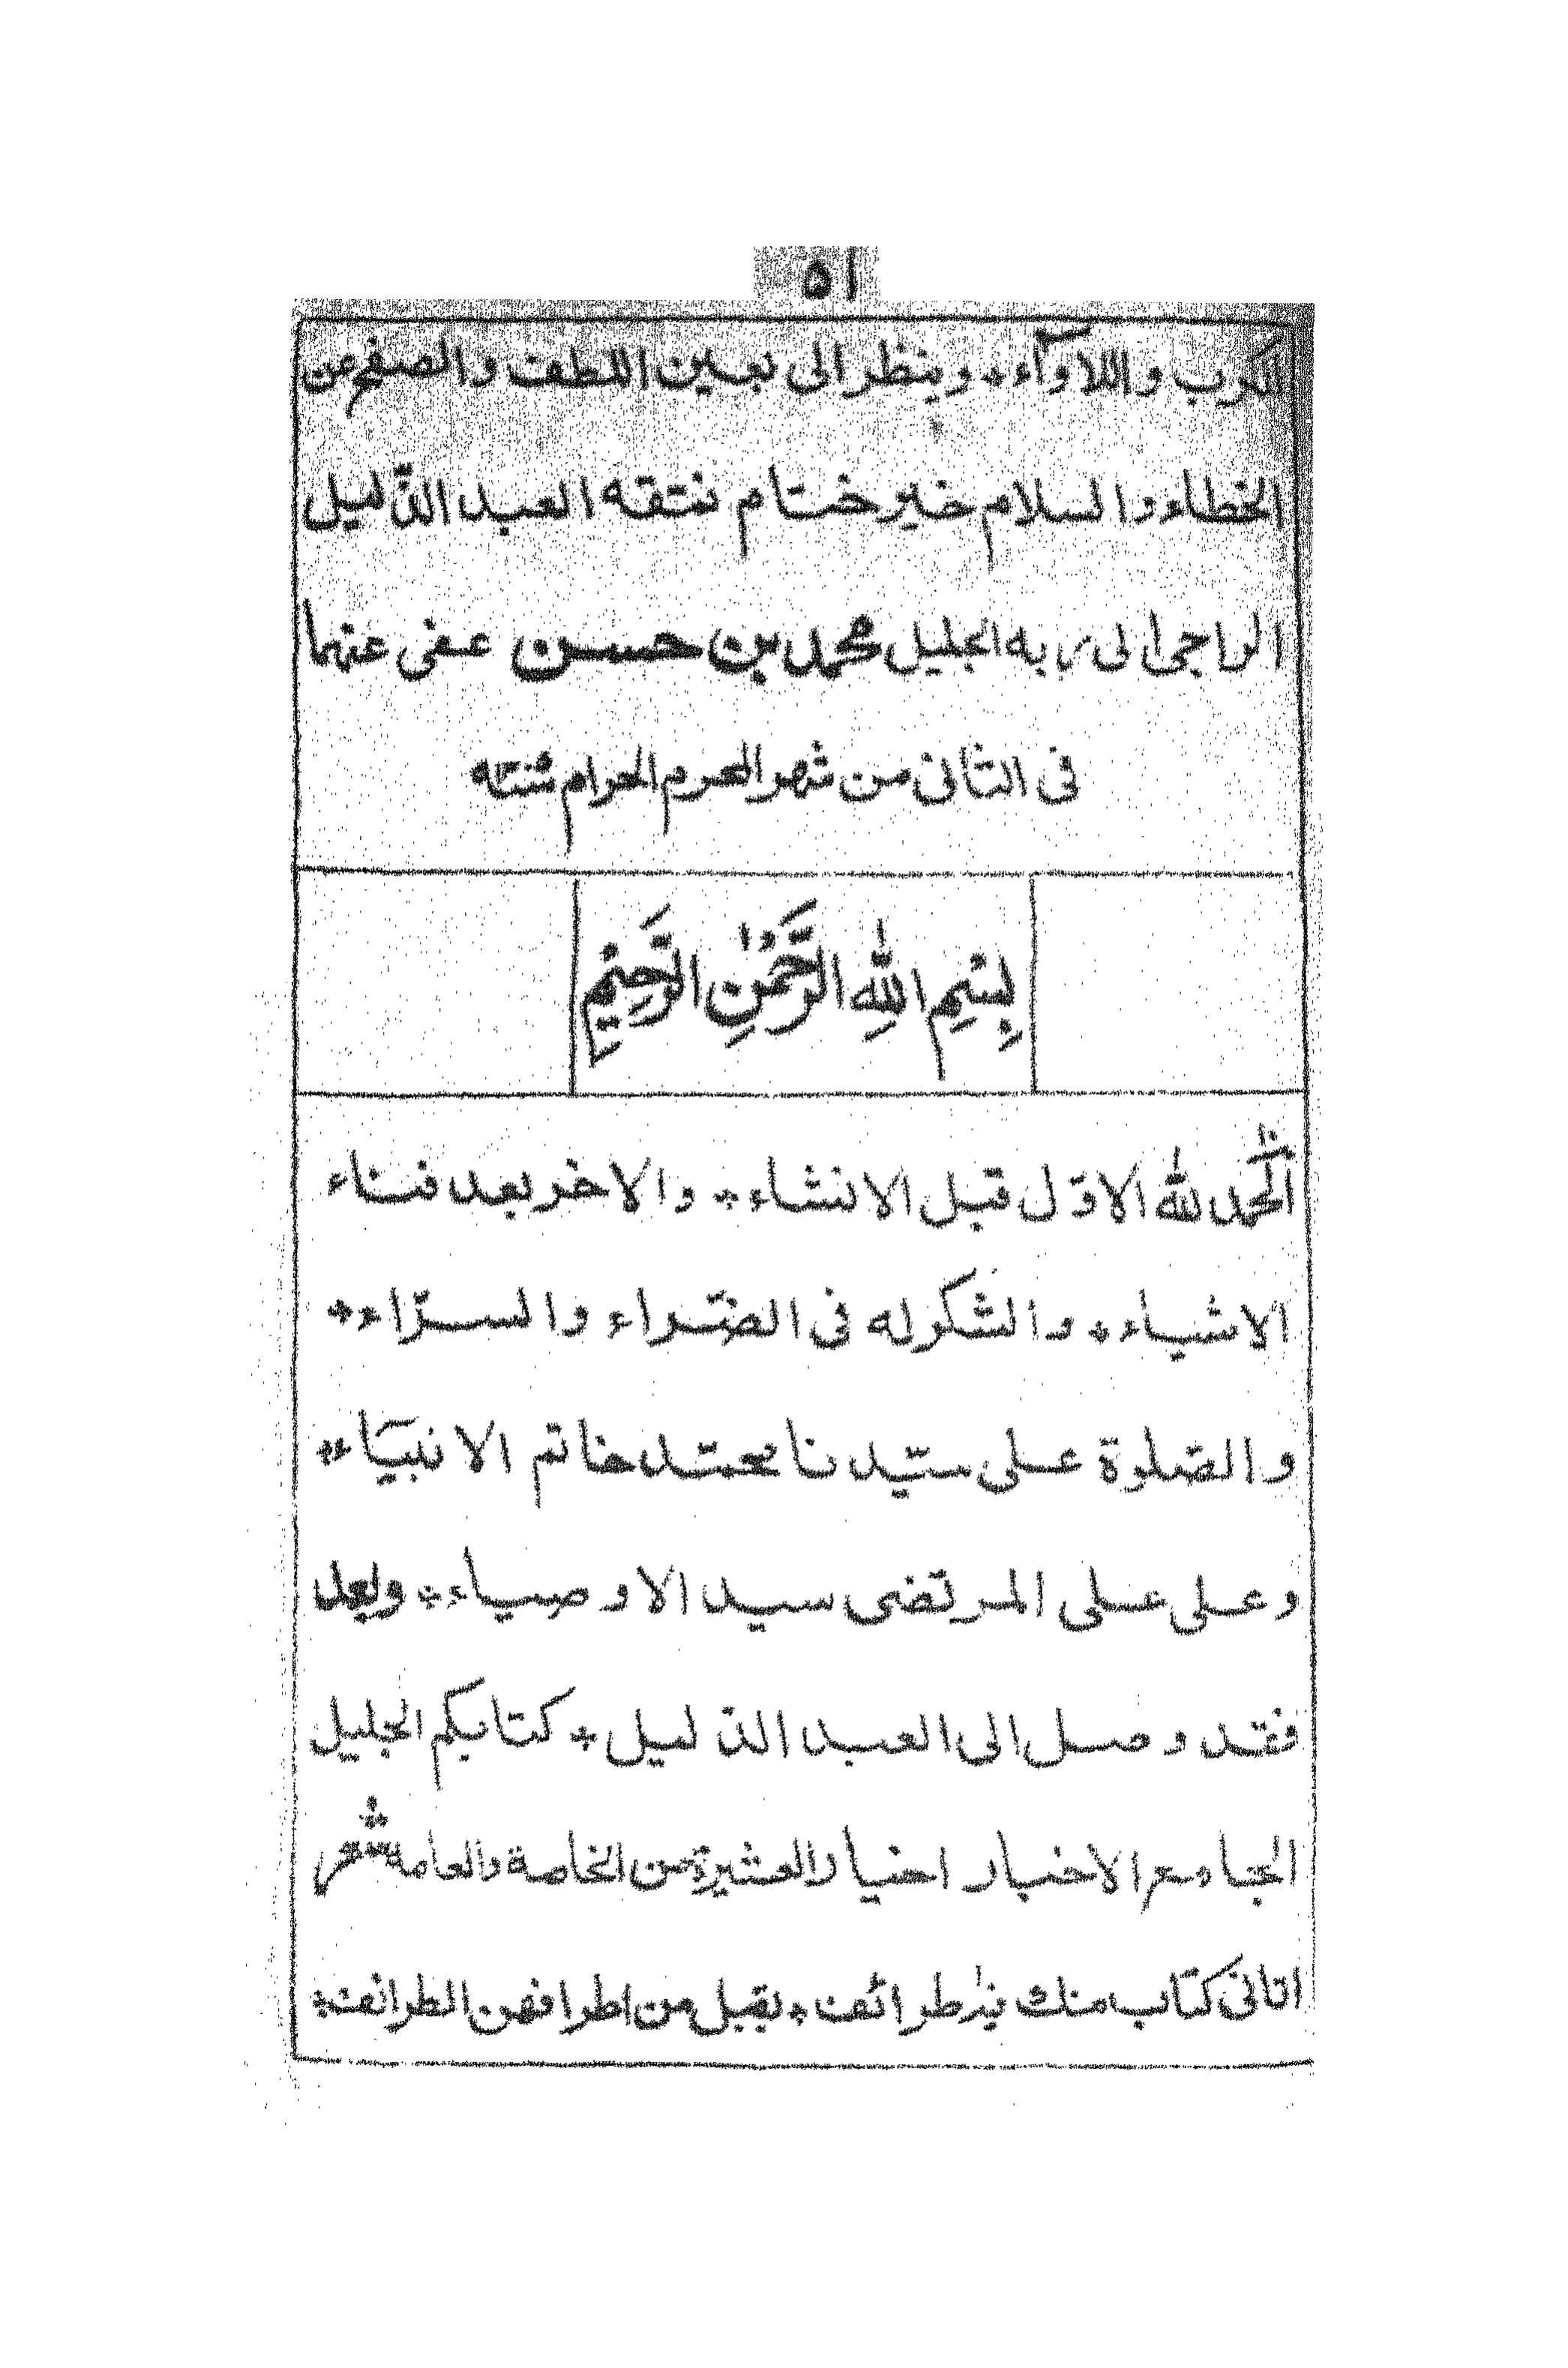 ٥١
الكرب واللاوآء * وينظر الى بعين اللطف والصفح عن
الخطاء والسلام خير ختام نمتقه العبد الذّليل
الراجى الى ربه الجليل محمد بن حسن عفى عنهما
فى الثانى من شهر المحرم الحرام
بِسْمِ اللهِ الرَّحْمٰنِ الرَّحِيْمِ
الحمد لله الاوّل قبل الانشاء * والاخر بعد فناء
الاشياء * والشكر له فى الضّراء والسرّاء *
والصّلوة على سيّدنا محمّد خاتم الانبيآء *
وعلى على المرتضى سيد الاوصياء * وبعد
فقد وصل الى العبد الذليل * كتابكم الجليل
الجامع الاخبار اخيار العشيرة من الخاصة والعامه شعر
اتانى كتاب منك فيه طرائف * يقبل من اطرافهن الطرائف *